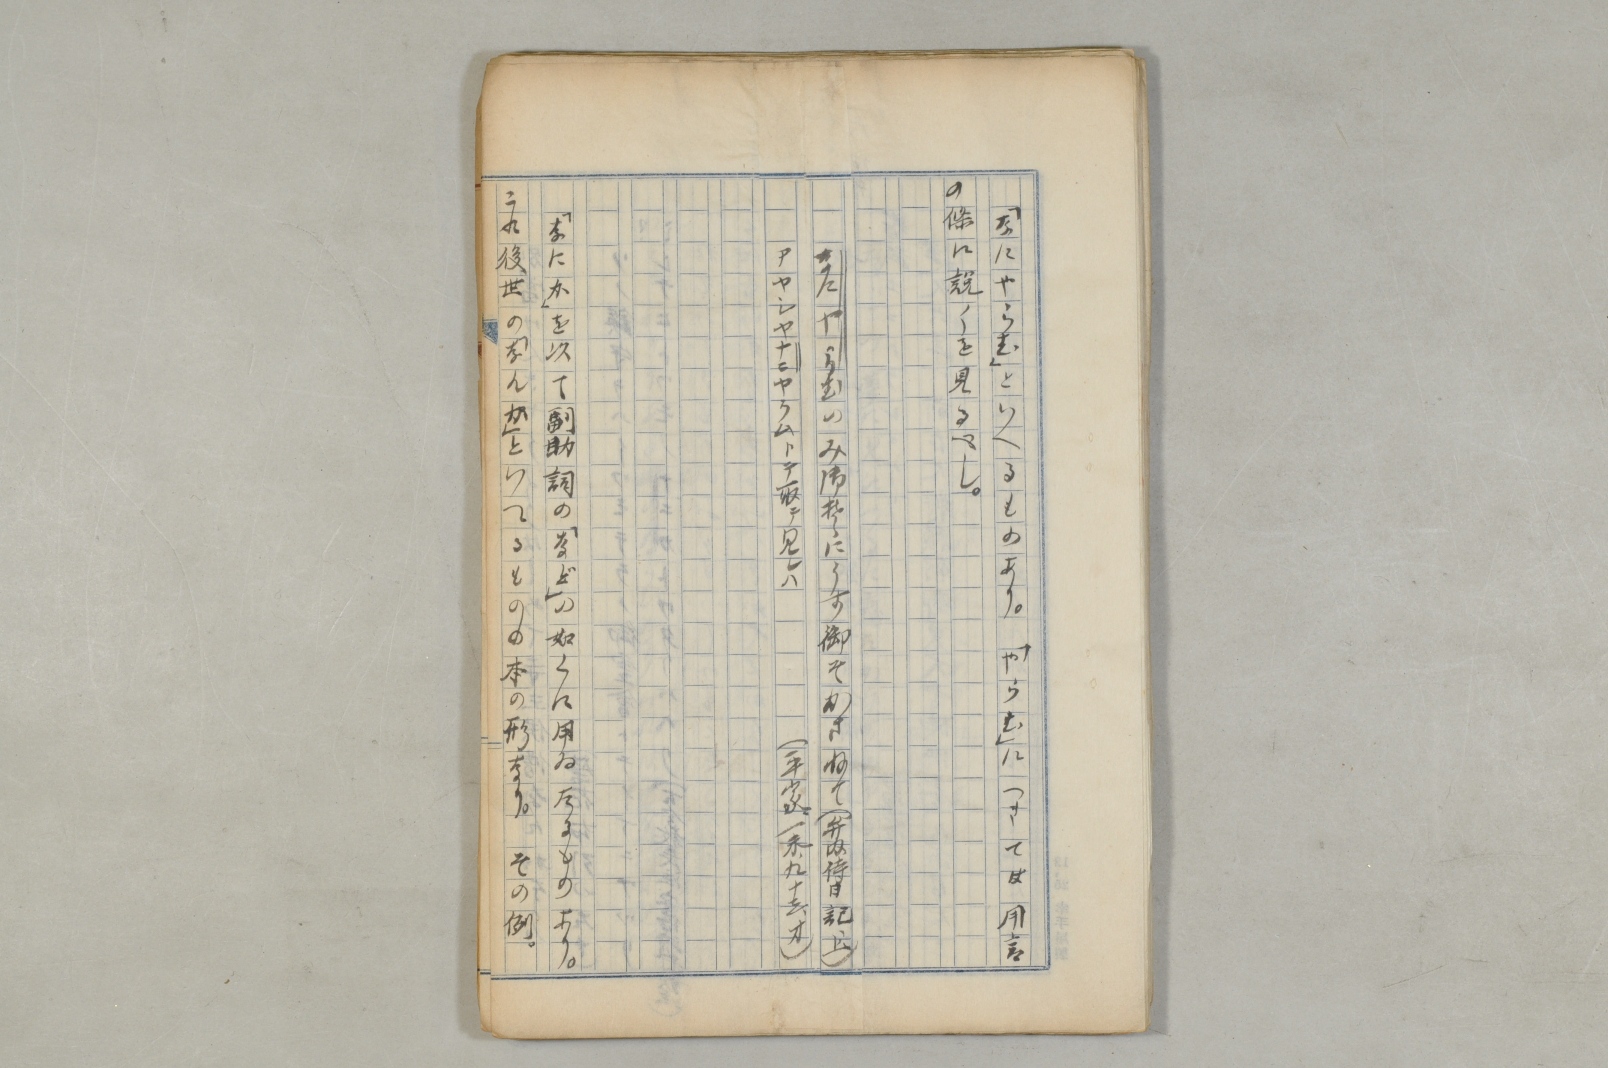 「なにやらむ」といへるものあり。「やらむ」につきては用言
の條に説くを見るべし。
なにやらむのみ御ぞにうす御そかさねて(弁内侍日記、上)
アヤシヤナニヤラムトテ取テ見レハ
(平家(一本、九ノ十六オ)
「なにか」を以て副助詞の「など」の如くに用ゐたるものあり。
これ後世の「なんか」といへるものの本の形なり。その例。